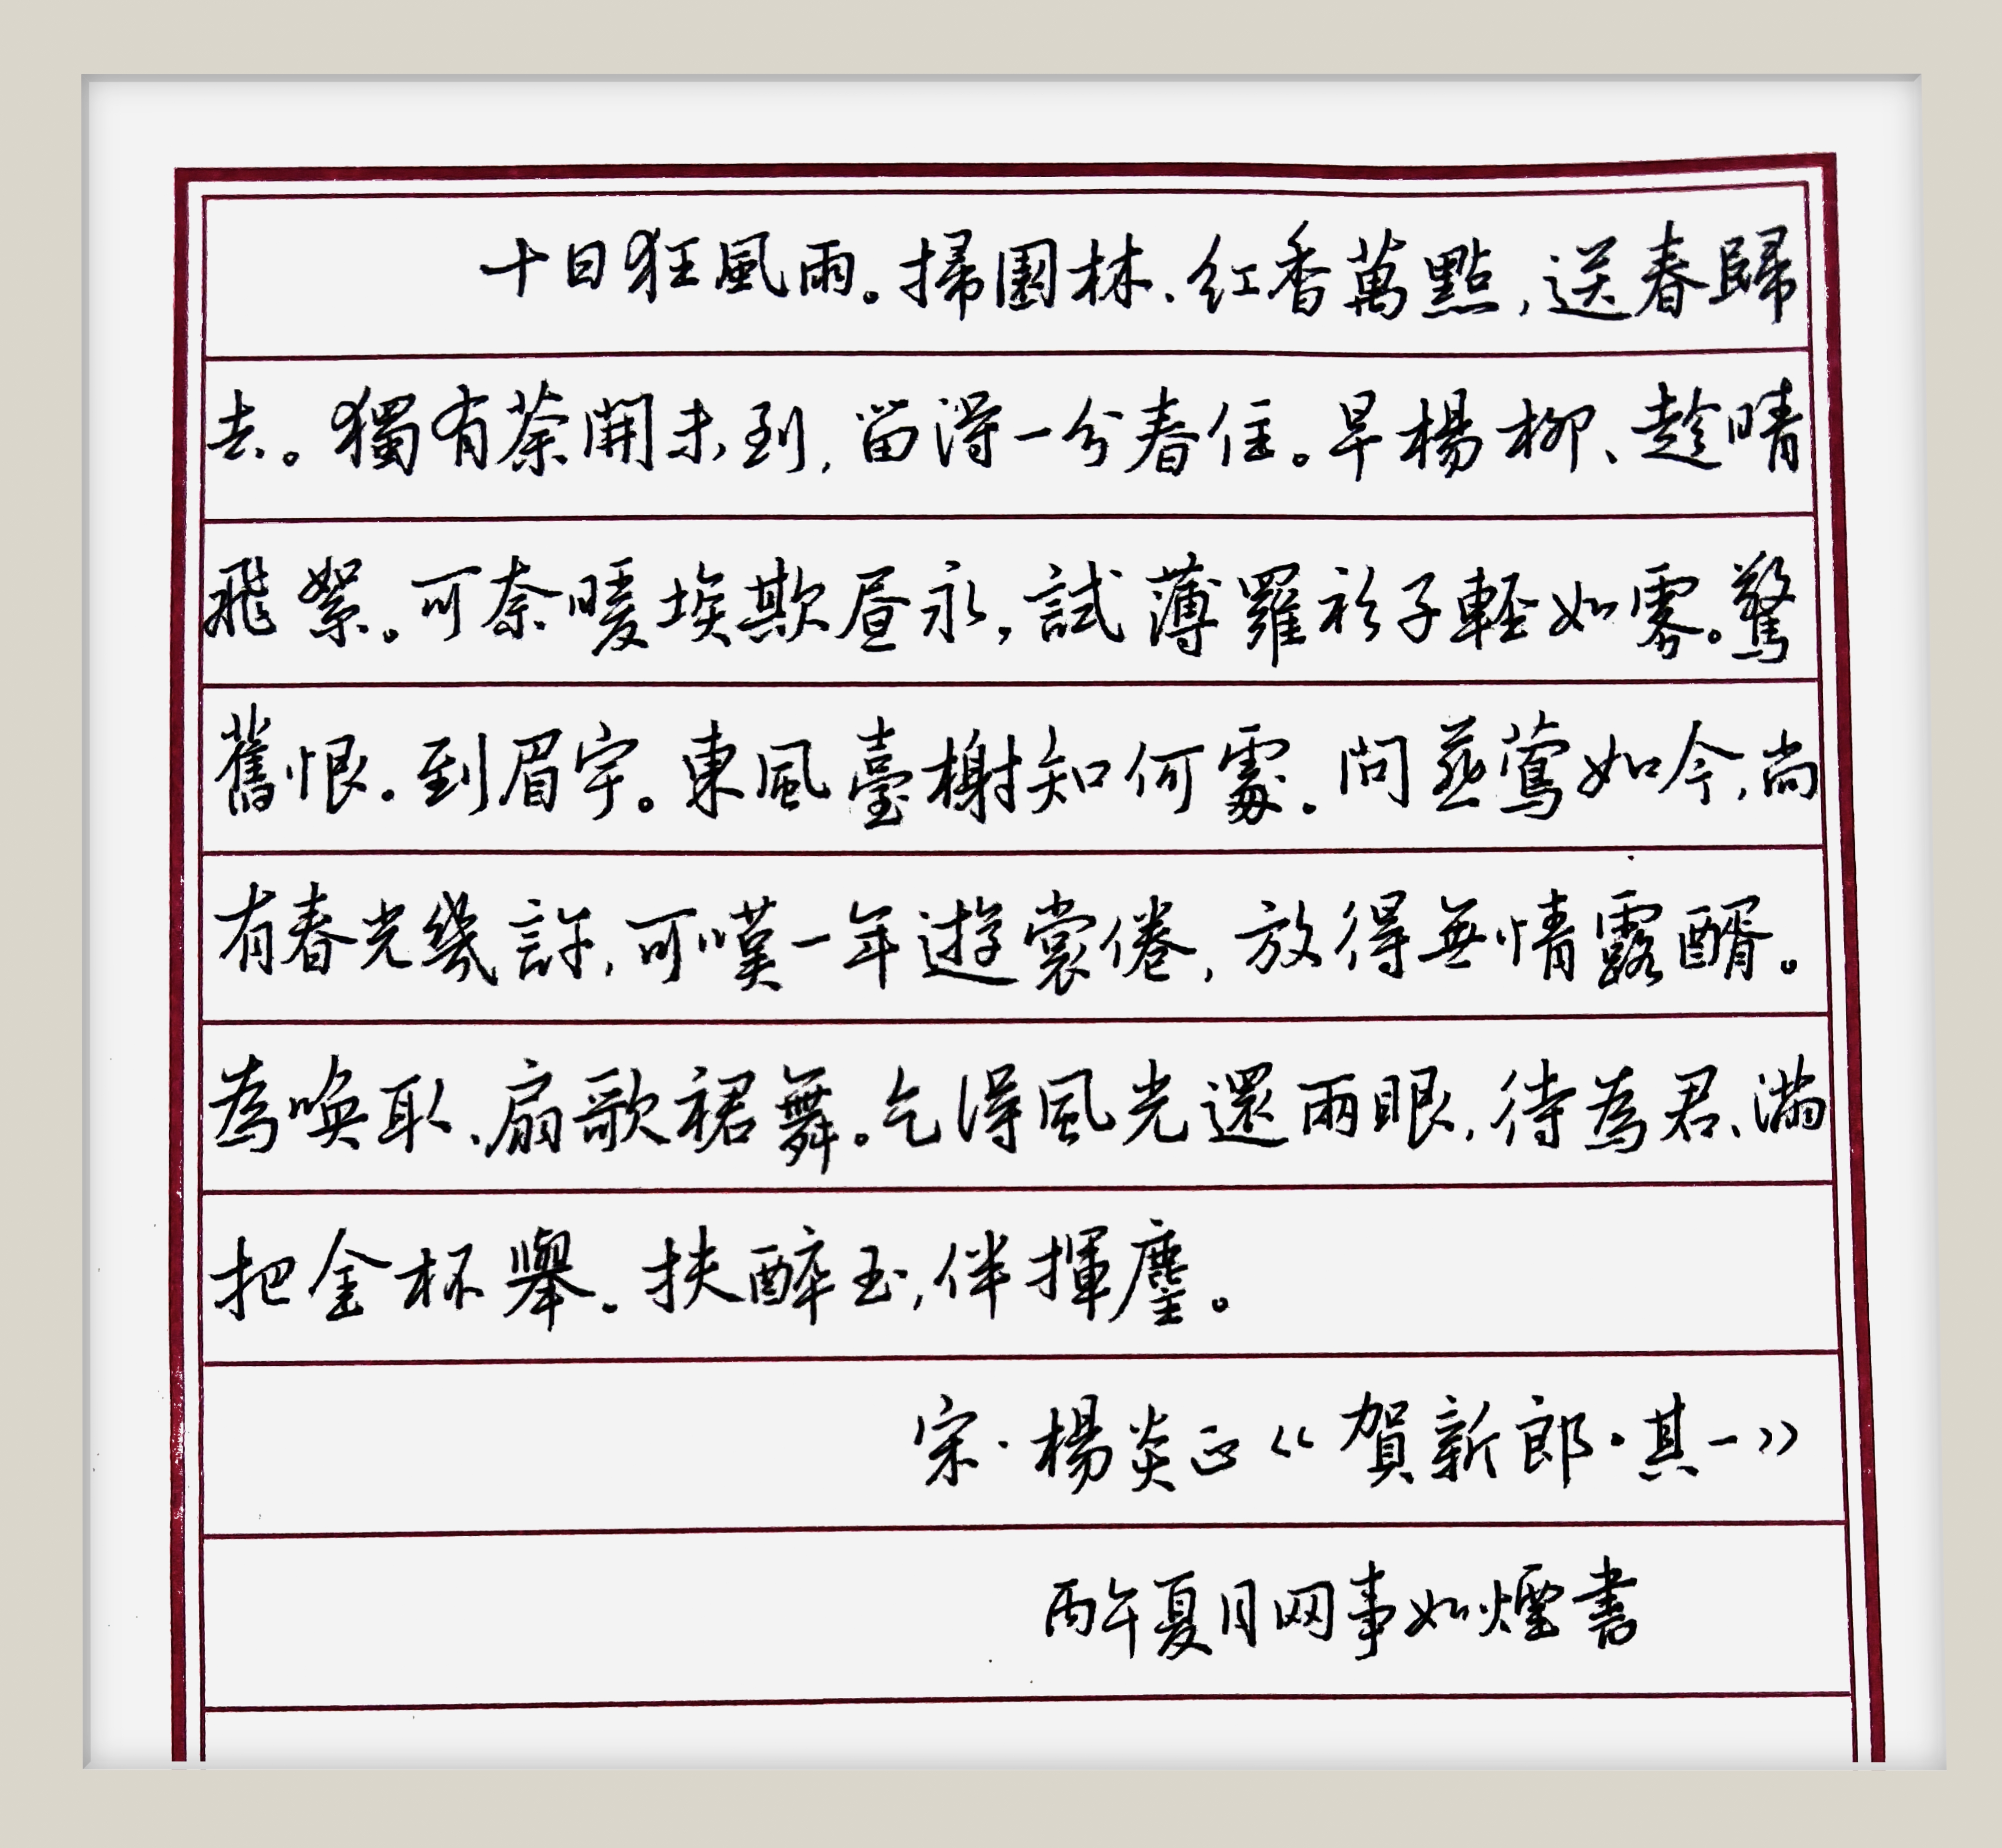 十日狂風雨。掃園林、红香萬點，送春歸
去。獨有荼開未到，留得一分春住。早楊柳、趁晴
飛絮。可奈暖埃欺昼永，試薄羅衫子輕如霧。驚
舊恨。到眉宇。東風臺榭知何處。問燕鶯如今，尚
有春光幾許，可嘆一年遊賞倦，放得無情露醑。
為喚取、扇歌裙舞。乞得風光還兩眼，待為君、滿
把金杯舉。扶醉玉，伴揮麈。
宋·楊炎正《賀新郎·其一》
丙午夏月网事如煙書